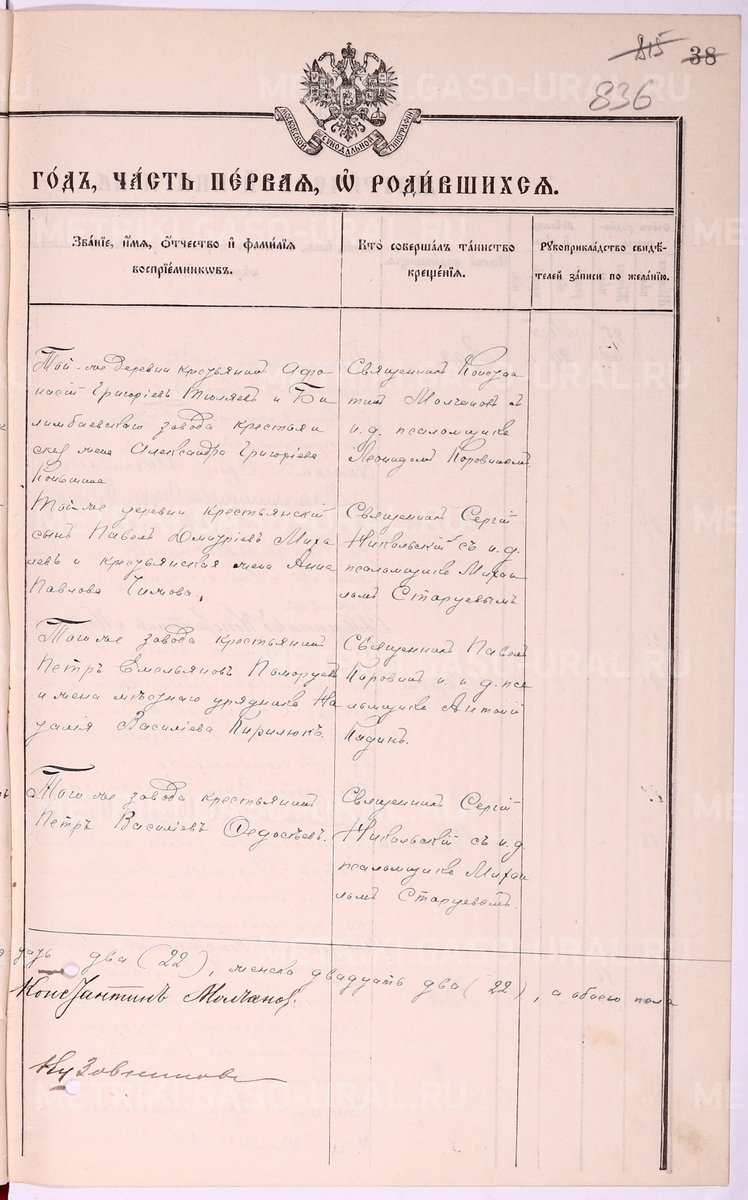 815 38
836
МОСКОВСКОЙ СѴНОДАЛЬНОЙ ТИПОГРАФІИ
ГОДЪ, ЧАСТЬ ПЕРВАЯ, Ѡ РОДИВШИХСЯ.
Званіе, имя, отчество и фамилія
воспріемниковъ.
Кто совершалъ таинство
крещенія.
Рукоприкладство свидѣ-
телей записи по желанію.
Той-же деревни крестьянинъ Афа
насій Григоріевъ Тюляевъ и Би
лимбаевскаго завода крестьян
ска жена Александра Григоріева
Коньшина
Священникъ Констан
тинъ Молчановъ съ
и. д. псаломщика
Леонидомъ Коровинымъ
Той-же деревни крестьянскій
сынъ Павелъ Дмитріевъ Миха
левъ и крестьянская жена Анна
Павлова Чижова.
Священникъ Сергій
Никольскій съ и. д.
псаломщика Михаи
ломъ Старцевымъ
Того же завода крестьянинъ
Петръ Емельяновъ Поморцевъ
и жена мѣстнаго урядника На
талія Василіева Кирилюкъ.
Священникъ Павелъ
Коровинъ и и. д. пса
ломщика Антоній
Того же завода крестьянинъ
Петръ Василіевъ Ѳедосѣевъ.
Священникъ Сергій
Никольскій съ и. д.
псаломщика Михаи
ломъ Старцевымъ.
цать два (22), женска двадцать два (22), а обоего пола
Константинъ Молчановъ.
METRIKI.GASO-URAL.RU